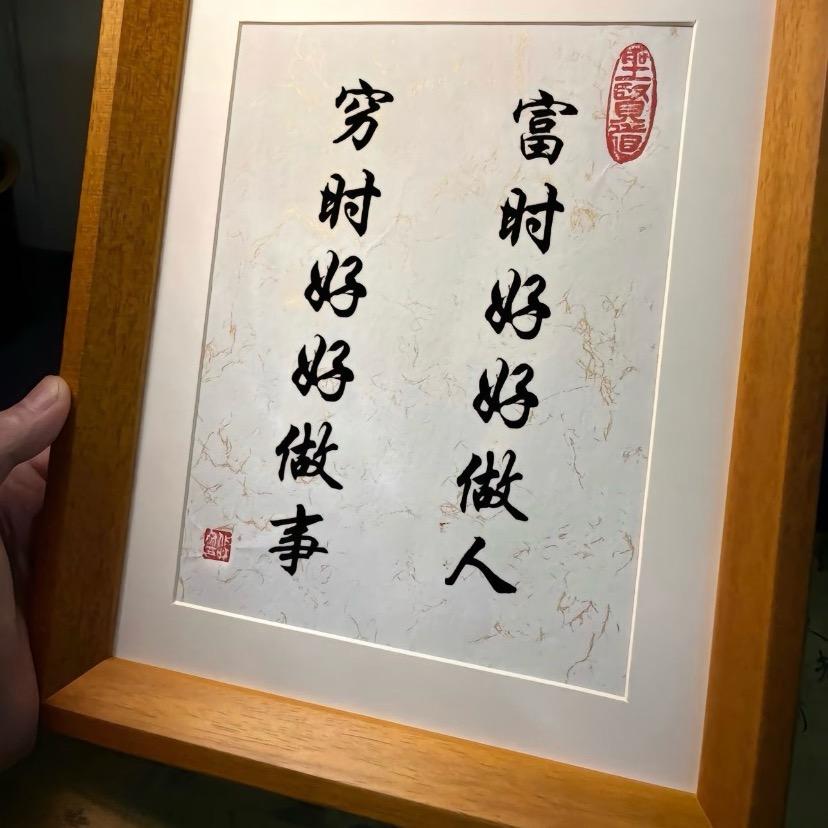 聖賢道
富时好好做人
穷时好好做事